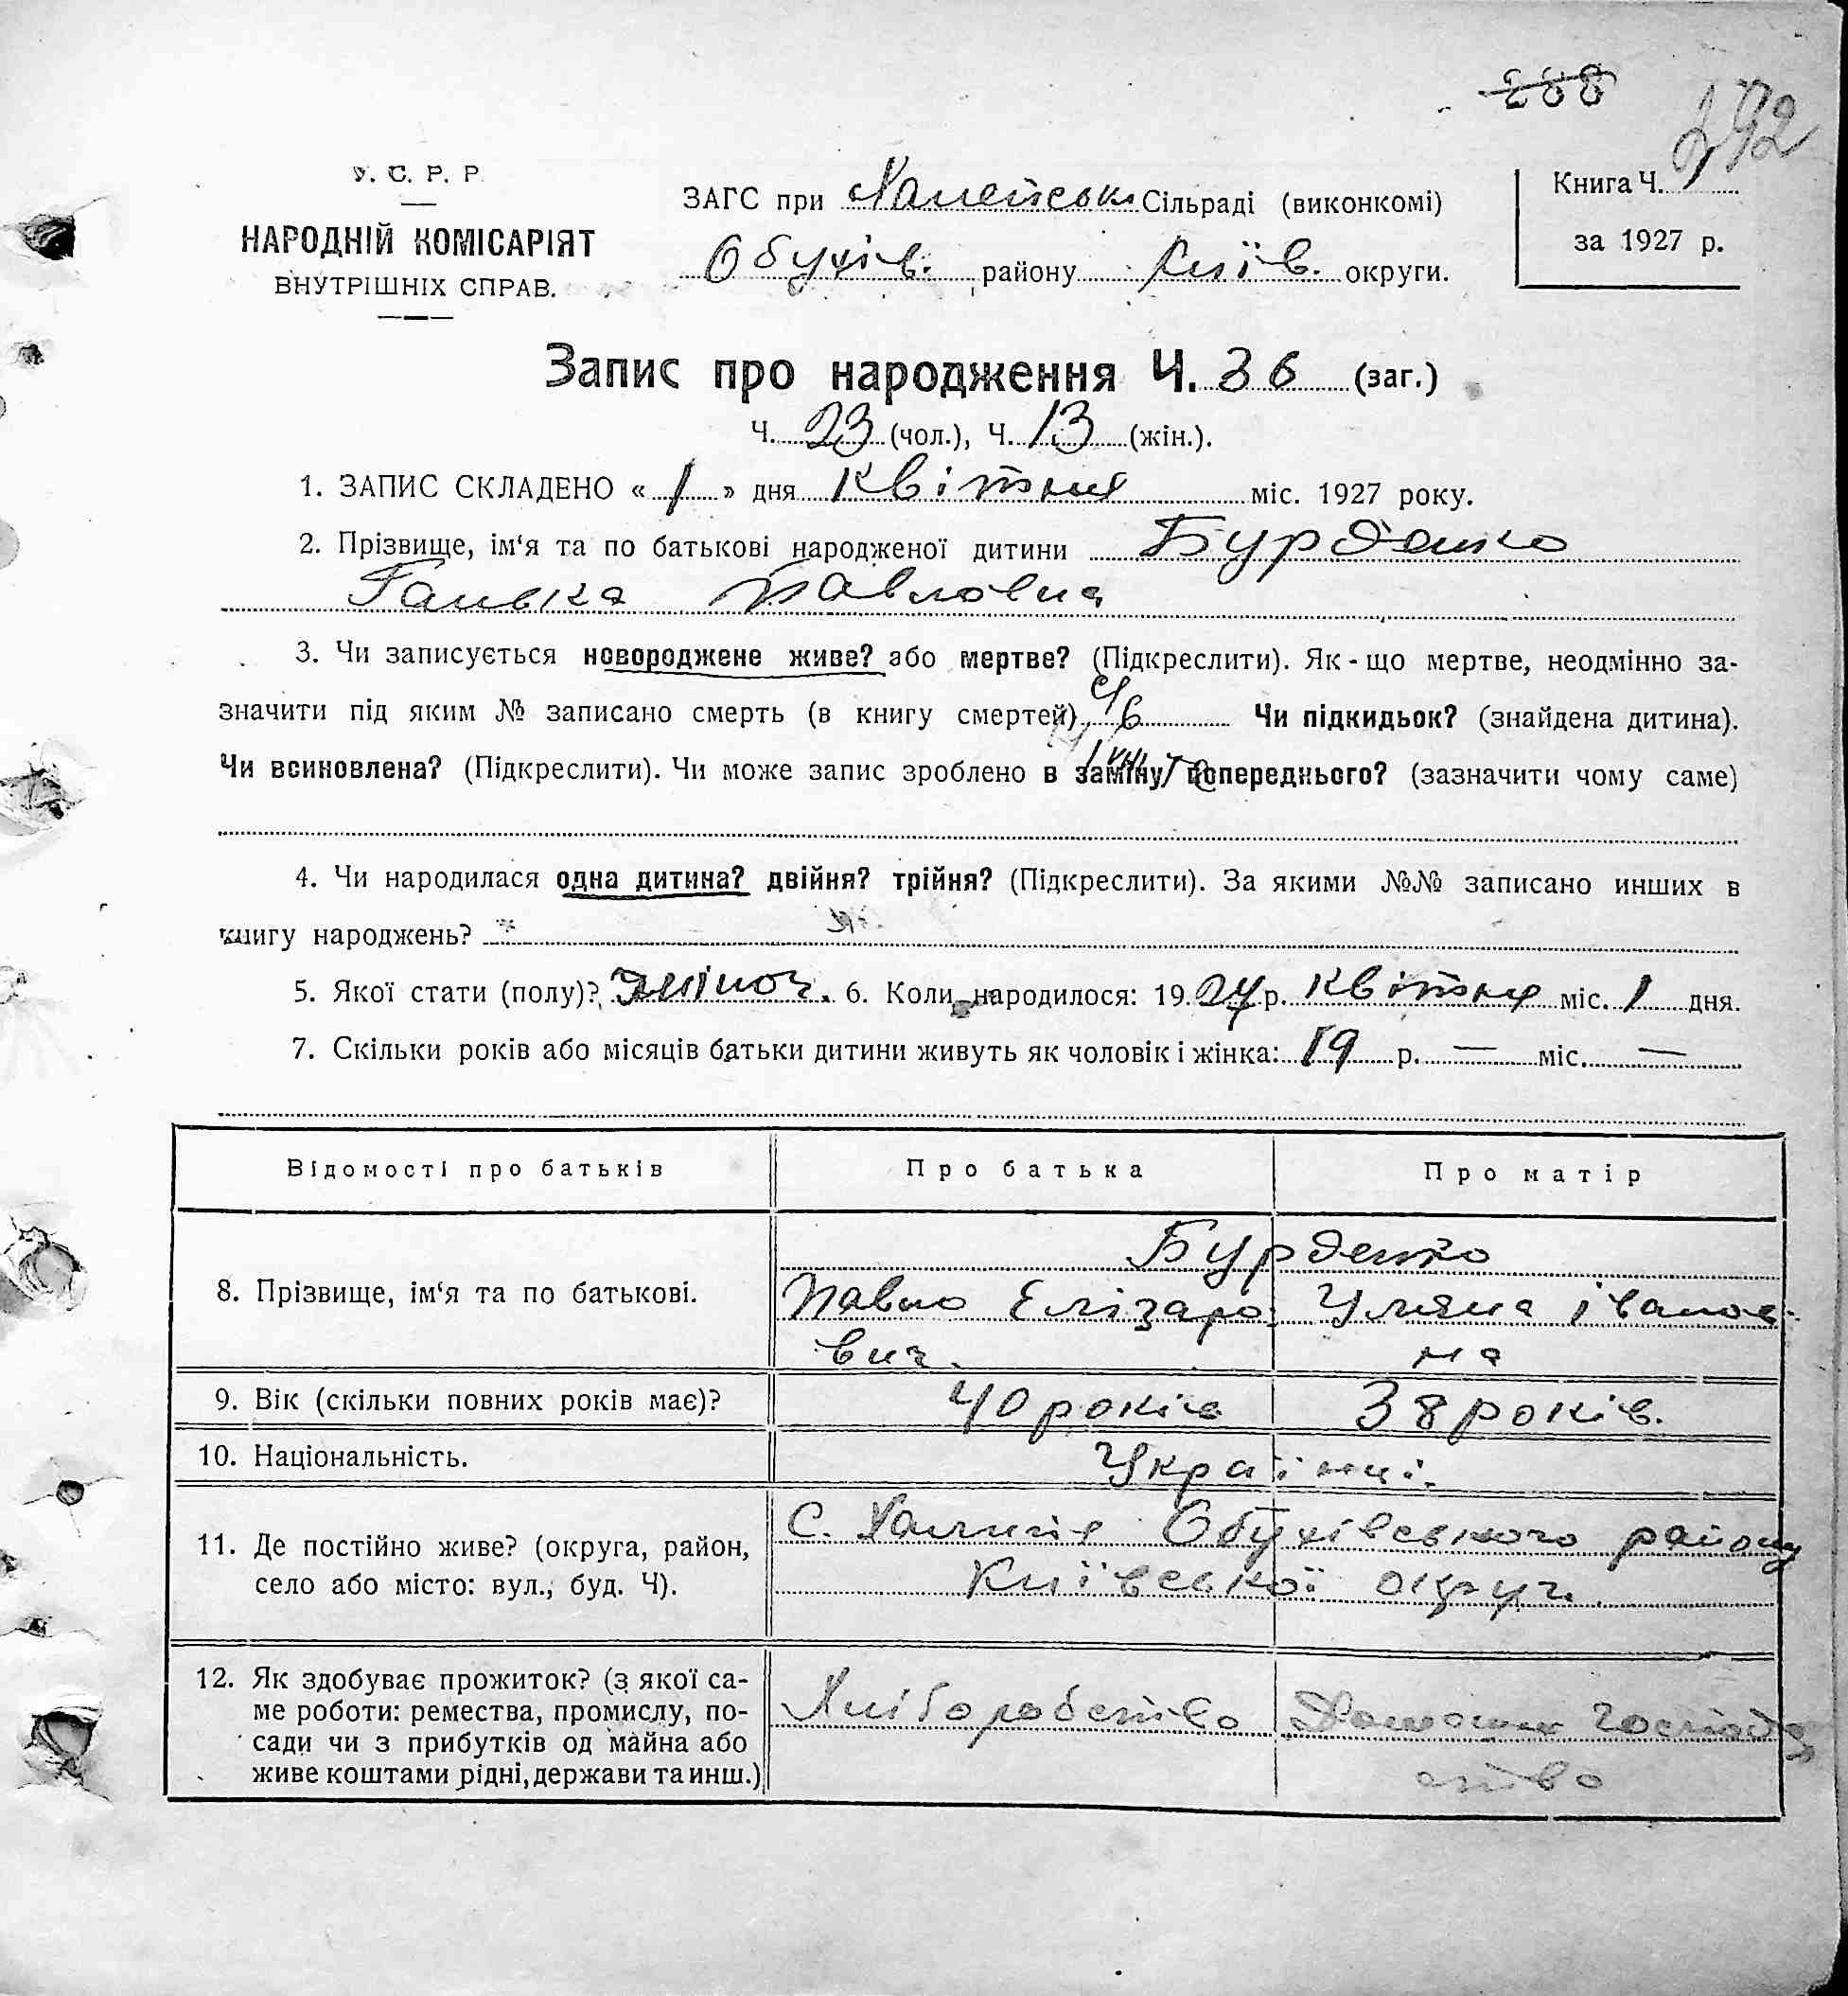 288
292
У. С. Р. Р
НАРОДНІЙ КОМІСАРІЯТ
ВНУТРІШНІХ СПРАВ.
ЗАГС при Сільраді (виконкомі)
Обухів. району Київ. округи.
Книга Ч. 1
за 1927 р.
Запис про народження Ч. 36 (заг.)
Ч. 23 (чол.), Ч. 13 (жін.).
1. ЗАПИС СКЛАДЕНО « 1 » дня Квітня міс. 1927 року.
2. Прізвище, ім'я та по батькові народженої дитини Бурденко
Ганька Павловна
3. Чи записується новороджене живе? або мертве? (Підкреслити). Як-що мертве, неодмінно за-
значити під яким № записано смерть (в книгу смертей) Чи підкидьок? (знайдена дитина).
Чи всиновлена? (Підкреслити). Чи може запис зроблено в заміну попереднього? (зазначити чому саме)
4. Чи народилася одна дитина? двійня? трійня? (Підкреслити). За якими №№ записано инших в
книгу народжень?
5. Якої стати (полу)? жіноч. 6. Коли народилося: 1927 р. Квітня міс. 1 дня.
7. Скільки років або місяців батьки дитини живуть як чоловік і жінка: 19 р. — міс. —
Відомості про батьків Про батька Про матір
Бурденко
8. Прізвище, ім'я та по батькові. Павло Елізаро- Уляна Іванов-
вич. на
9. Вік (скільки повних років має)? 40 років 38 років.
10. Національність. Українці.
11. Де постійно живе? (округа, район,
село або місто: вул., буд. Ч).
С. Халпʼя Обухівського району
Київської округи
12. Як здобуває прожиток? (з якої са-
ме роботи: ремества, промислу, по-
сади чи з прибутків од майна або
живе коштами рідні, держави та инш.)
Хліборобство
Домашнє господар
ство